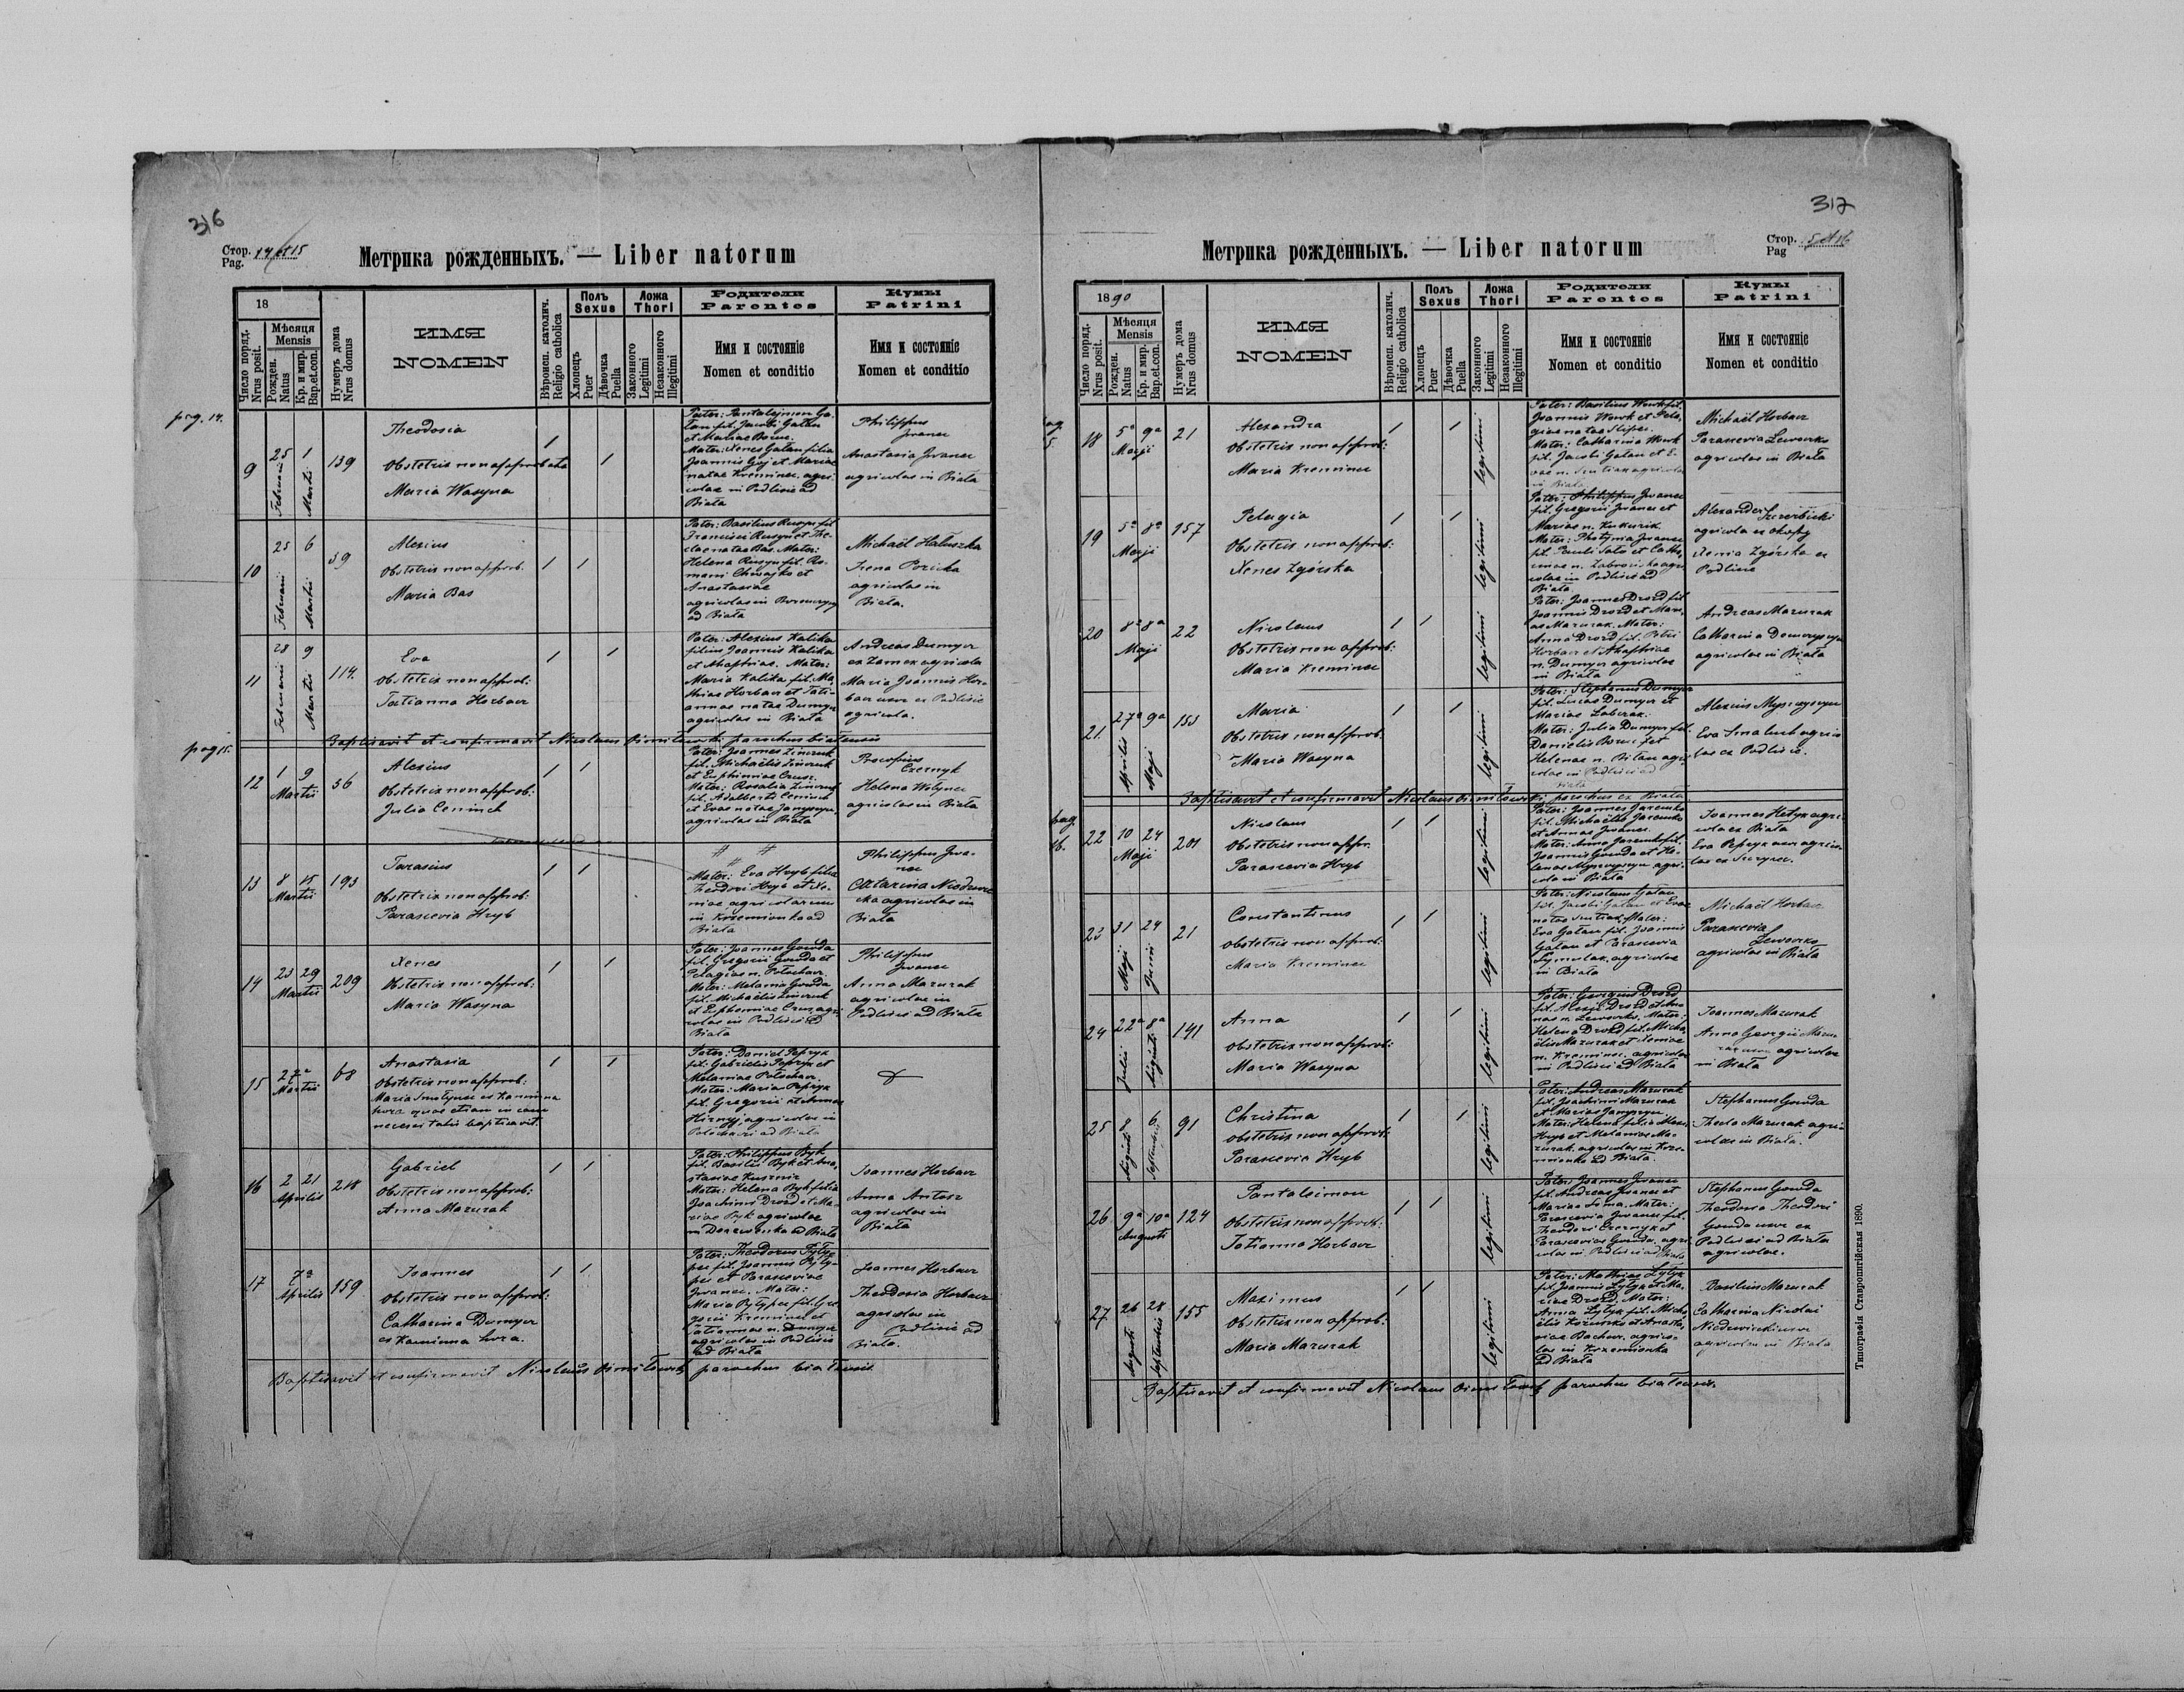 316
Стор. 14 et 15
Pag.
Метрика рожденныхъ. — Liber natorum
18
Число поряд.
Nrus posit.
Мѣсяця
Mensis
Рожден.
Natus
Кр. и мир.
Bap.et.con.
Нумеръ дома
Nrus domus
ИМЯ
NOMEN
Вѣроисп. католич.
Religio catholica
Полъ
Sexus
Хлопецъ
Puer
Дѣвочка
Puella
Ложа
Thori
Законного
Legitimi
Незаконного
Illegitimi
Родители
Parentes
Имя и состояніе
Nomen et conditio
Кумы
Patrini
Имя и состояніе
Nomen et conditio
pag. 14.
9
25 Februarii
1 Martii
139
Theodosia
Obstetrix non approbata
Maria Wasyna
Pater: Pantalejmon Ga-
łan fil. Jacobi Gałan
et Mariae
Mater: Xenes Gałan filia
Joannis Guj et Mariae
natae Kreminec, agri-
colae in Podlisie ad
Biała
Philippus
Iwanec
Anastasia Iwanec
agricolae in Biała
10
25 Februarii
6 Martii
59
Alexius
Obstetrix non approb.
Maria Bas
Pater: Basilius Rusyn fil
Francisci Rusyn et The-
clae natae Bas. Mater:
Helena Rusyn fil. Ro-
mani et
Anastasiae
agricolae in
ad Biała
Michaël Hałuszka
Irena
agricolae in
Biała.
11
28 Februarii
9 Martii
114.
Eva
Obstetrix non approb.
Tatianna Horbacz
Pater: Alexius Kalika
filius Joannis Kalika
et Ahaphiae. Mater:
Maria Kalika fil. Ma-
thiae Horbacz et Tati-
annae natae Dumycz
agricolae in Biała
Andreas Dumycz
ex Zamek agricola
Maria Joannis Hor-
bacz uxor ex Podlisie
agricola.
Baptisavit et confirmavit Nicolaus parochus białensis
pag 15.
12
1 9
Martii
56
Alexius
Obstetrix non approb:
Julia Ceninch
Pater: Joannes Zinczuk
fil. Michaëlis Zinczuk
et Euphimiae
Mater: Rosalia Zinczuk
fil. Adalberti Ceninch
et Evae natae
agricolae in Biała
Procopius
Czernyk
Helena
agricolae in Biała
13
8 15
Martii
193
Tarasius
Obstetrix non approb:
Parascevia Hryb
Mater: Eva Hryb filia
Theodori Hryb et Xe-
niae agricolarum
in Krzemionka ad
Biała
Philippus Iwa-
nec
Catarina
agricolae in
Biała
14
23 29
Martii
209
Xenes
Obstetrix non approb:
Maria Wasyna
Pater: Joannes Gowda
fil. Gregorii Gowda et
Pelagiae n. Potochacz.
Mater: Melania Gowda
fil. Michaëlis Zinczuk
et Euphemiae agri-
colae in Podlisie ad
Biała
Philippus
Iwanec
Anna Mazurak
agricolae in
Podlisie ad Biała
15
27ª
Martii
68
Anastasia
Obstetrix non approb:
Maria ex Kaminna
hora quae etiam in casu
necessitatis baptisavit.
Pater: Daniel Pepryk
fil. Gabrielis Pepryk et
Melaniae Potochacz.
Mater: Maria Pepryk
fil. Gregorii et Annae
agricolae in
ad Biała
16
2 21
Aprilis
218
Gabriel
Obstetrix non approb:
Anna Mazurak
Pater: Philippus Byk
fil. Basilii Byk et Ana-
stasiae
Mater: Helena Byk filia
Joachimi Drozd et Ma-
riae Byk agricolae
in ad Biała
Joannes Horbacz
Anna Antosz
agricolae in
Biała
17
7ª
Aprilis
159
Joannes
Obstetrix non approb:
Catharina Dumycz
ex Kaminna hora.
Pater: Theodorus
fil. Joannis
et Parasceviae
Iwanec. Mater:
Maria fil. Gre-
gorii Kreminec et
Tatiannae n. Dumycz
agricolae in Podlisie
ad Biała
Joannes Horbacz
Theodosia Horbacz
agricolae in
Podlisie ad
Biała.
Baptisavit et confirmavit Nicolaus parochus białensis
317
Стор. 15 et 16
Pag
Метрика рожденныхъ. — Liber natorum
1890
Число поряд.
Nrus posit.
Мѣсяця
Mensis
Рожден.
Natus
Кр. и мир.
Bap.et.con.
Нумеръ дома
Nrus domus
ИМЯ
NOMEN
Вѣроисп. католич.
Religio catholica
Полъ
Sexus
Хлопецъ
Puer
Дѣвочка
Puella
Ложа
Thori
Законного
Legitimi
Незаконного
Illegitimi
Родители
Parentes
Имя и состояніе
Nomen et conditio
Кумы
Patrini
Имя и состояніе
Nomen et conditio
pag.
15
18
5ª 9ª
Maji
21
Alexandra
Obstetrix non approb:
Maria Kreminec
legitimi
Pater: Basilius Wowk fil.
Joannis Wowk et Pela-
giae natae Slipec.
Mater: Catharina Wowk
fil. Jacobi Gałan et E-
vae n. agricolae
in Biała
Michaël Horbacz
Parascevia Lewocko
agricolae in Biała
19
5ª 8ª
Maji
157
Pelagia
Obstetrix non approb:
Xenes Zgórska
legitimi
Pater: Philippus Iwanec
fil. Gregorii Iwanec et
Mariae n. Kukurik.
Mater: Photyna Iwanec
fil. Pauli et Catha-
rinae n. agri-
colae in Podlisie ad
Biała
Alexander Szczerbicki
agricola ex
Xenia Zgórska ex
Podlisie
20
8ª 8ª
Maji
22
Nicolaus
Obstetrix non approb:
Maria Kreminec
legitimi
Pater: Joannes Drozd fil
Joannis Drozd et Mari-
ae Mazurak. Mater:
Anna Drozd fil. Petri
Horbacz et Ahaphiae
n. Dumycz agricolae
in Biała
Andreas Mazurak
Catharina
agricolae in Biała
21.
27ª Aprilis
9ª Maji
153
Maria
Obstetrix non approb.
Maria Wasyna
legitimi
Pater: Stephanus Dumycz
fil. Lucae Dumycz et
Mariae
Mater: Julia Dumycz fil.
Danielis et
Helenae n. agri-
colae in Podlisie ad
Biała
Alexius
Eva agrico-
lae ex Podlisie.
Baptisavit et confirmavit Nicolaus parochus ex Biała
pag.
16.
22
10 24
Maji
201
Nicolaus
Obstetrix non appr.
Parascevia Hryb
legitimi
Pater: Joannes Jaremko
fil. Michaëlis Jaremko
et Annae Iwanec.
Mater: Anna Jaremko fil.
Joannis Gowda et He-
lenae agri-
colae in Biała
Joannes Hetyk agri-
cola ex Biała
Eva Pepryk uxor agrico-
lae ex
23
31 Maji
24 Junii
21
Constantinus
Obstetrix non approb.
Maria Kreminec
legitimi
Pater: Nicolaus Gałan
fil. Jacobi Gałan et Evae
natae Mater:
Eva Gałan fil. Joannis
Gałan et Parascevia
agricolae
in Biała
Michaël Horbacz
Parascevia
Lewocko
agricolae in Biała
24
22ª Julii
8ª Augusti
191
Anna
Obstetrix non approb:
Maria Wasyna
legitimi
Pater: Georgius Drozd
fil. Alexii Drozd et An-
nae n. Lewocko. Mater:
Helena Drozd fil. Micha-
ëlis Mazurak et Xeniae
n. Kreminec. agricolae
in Podlisie ad Biała
Joannes Mazurak
Anna Georgii Mazu-
rak uxor agricolae
in Biała
25
8 Augusti
6 Septembris
91
Christina
Obstetrix non approb:
Parascevia Hryb
legitimi
Pater: Andreas Mazurak
fil. Joachimi Mazurak
et Mariae
Mater: Helena filia Alexii
Hryb et Melaniae Ma-
zurak. agricolae in Krze-
mionka ad Biała.
Stephanus Gowda
Thecla Mazurak agri-
colae in Biała.
26
9ª 10ª
Augusti
124
Pantaleimon
Obstetrix non approb:
Tatianna Horbacz
legitimi
Pater: Joannes Iwanec
fil. Andreae Iwanec et
Mariae Mater:
Parascevia Iwanec fil.
Theodori Czernyk et
Parasceviae Gowda. agri-
colae in Podlisie ad Biała
Stephanus Gowda
Theodosia Theodori
Gowda uxor ex
Podlisie ad Biała
agricolae.
27
26 Augusti
28 Septembris
155
Maximus
Obstetrix non approb:
Maria Mazurak
legitimi
Pater: Mathias Łytyk
fil. Joannis Łytyk et Ma-
riae Drozd. Mater:
Anna Łytyk fil. Micha-
ëlis et Anasta-
siae agrico-
lae in Krzemionka
ad Biała
Basilius Mazurak
Catharina Nicolai
uxor
agricolae in Biała
Baptisavit et confirmavit Nicolaus parochus białensis.
Типографія Ставропигійская 1890.